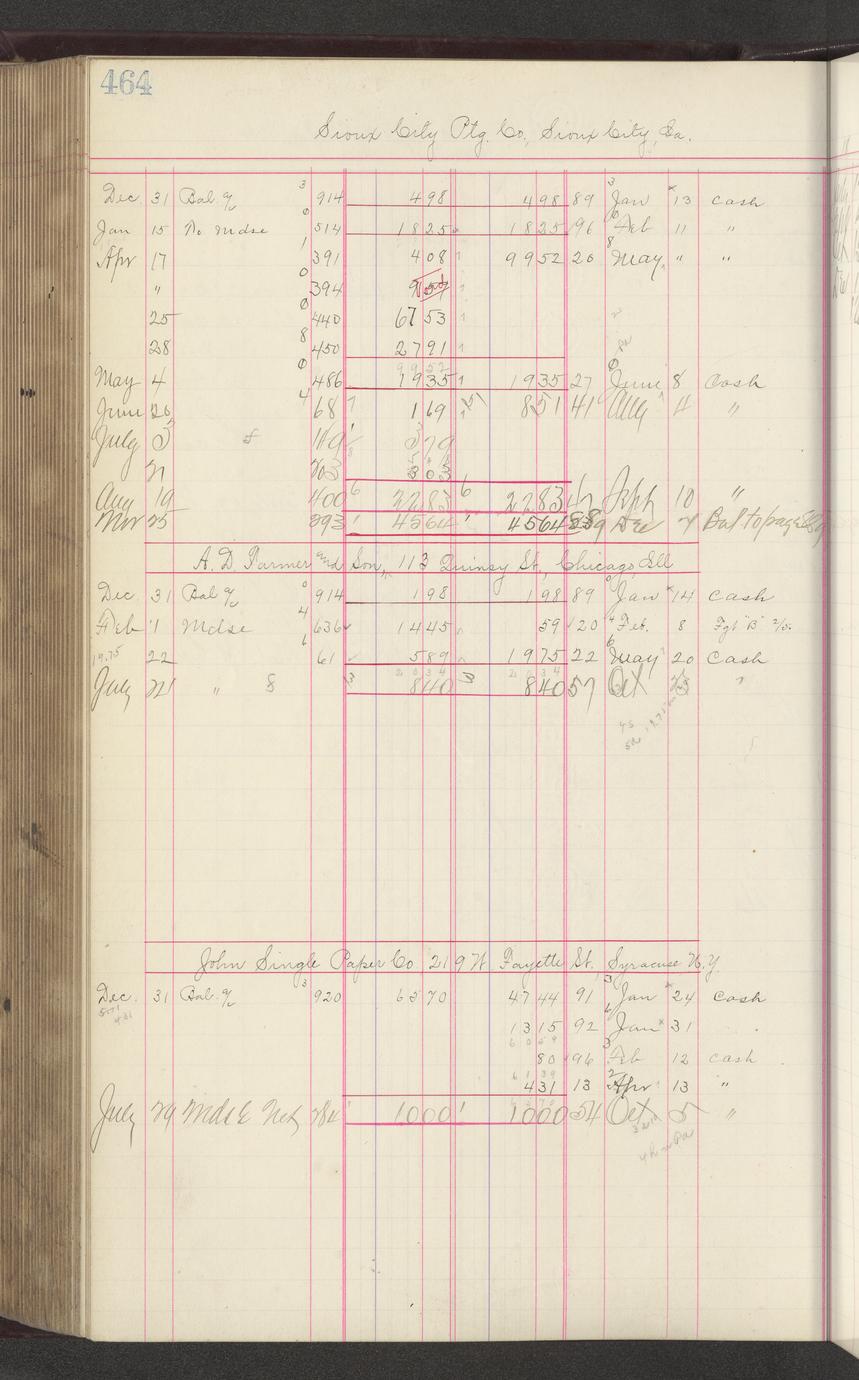 464
Sioux City Ptg. Co., Sioux City, Ia.
Dec. 31 Bal. 914 498 498 89 Jan 13 Cash
Jan 15 To Mdse 514 1825 1825 96 Feb 11 "
Apr 17 391 408 9952 20 May " "
" 394
25 440 6753
28 450 2791
9952
May 4 486 1935 1935 27 June 8 Cash
June 26 68 169 851 41 Aug 4 "
July 3 379
303
Aug 19 400 2283 2283 47 Sept 10 "
Nov 25 293 4564 4564 Dec Bal to page
A. D. Farmer and Son, 113 Quincy St., Chicago, Ill
Dec. 31 Bal 914 198 198 89 Jan 14 Cash
Feb 1 Mdse 636 1445 59 120 Feb. 8 Fgt "B" 2/5.
19.75 22 61 589 1975 22 May 20 Cash
2034 2034
July 21 " 8 840 840 57 Oct "
John Single Paper Co 219 W Fayette St. Syracuse N.Y.
Dec. 31 Bal. 920 6570 4744 91 Jan 24 Cash
1315 92 Jan 31
6059
80 96 Feb 12 Cash
6139
431 13 Apr 13 "
July 29 Mdse Net 284 1000 1000 54 Oct 5 "